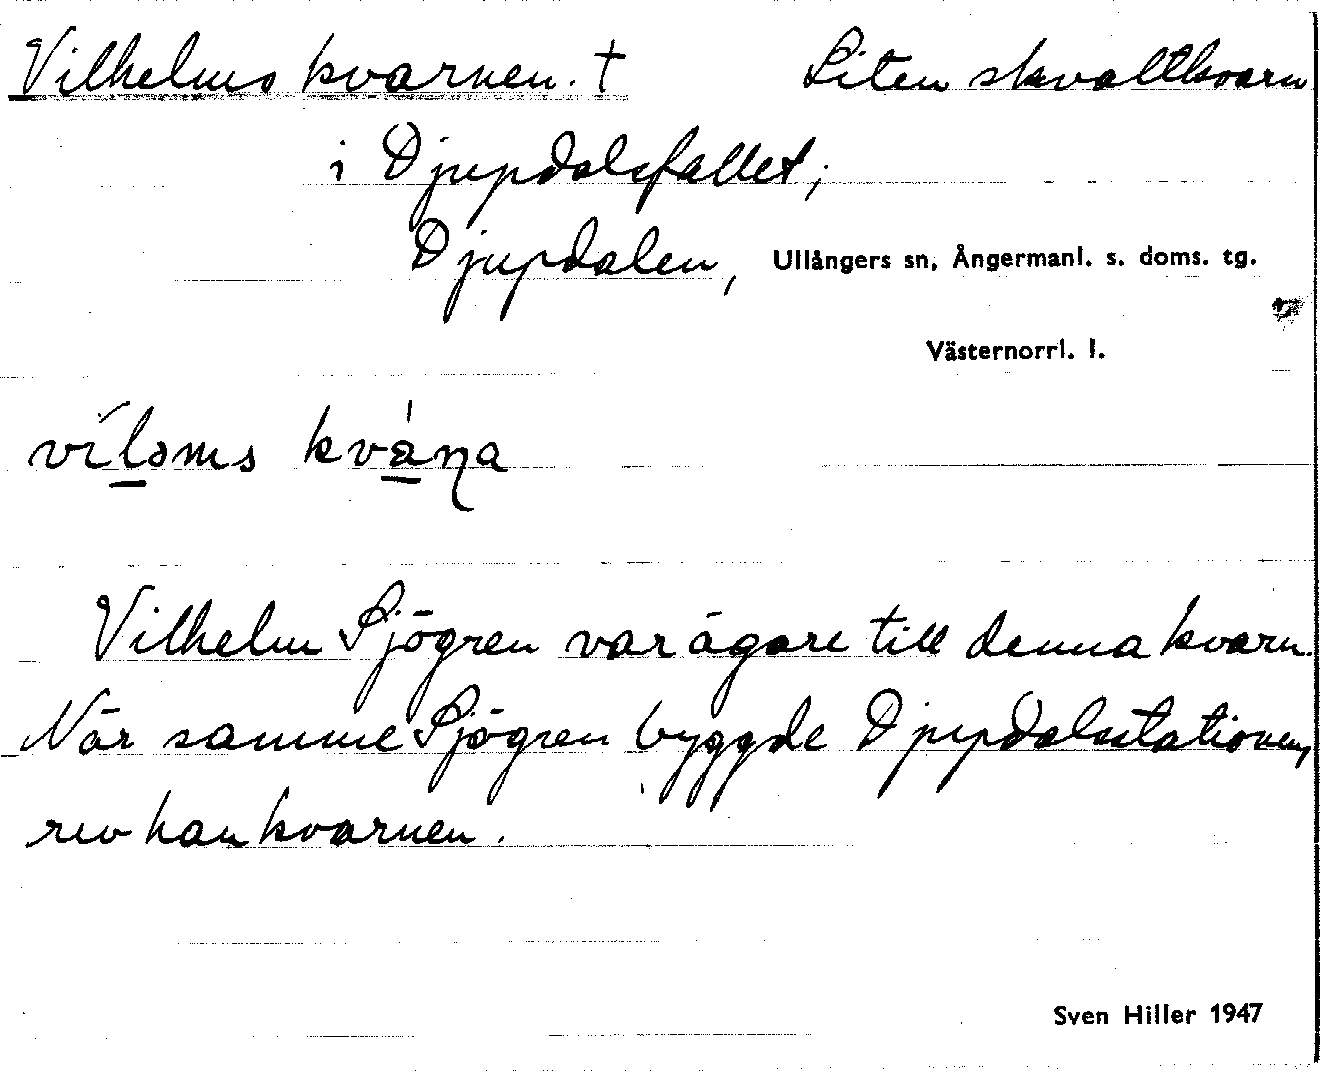 Vilhelms kvarnen. † Liten skvaltkvarn
i Djupdalsfallet;
Djupdalen, Ullångers sn, Ångermanl. s. doms. tg.
Västernorrl. l.
víləms kvàɳa
Vilhelm Sjögren var ägare till denna kvarn.
När samme Sjögren byggde Djupdalsstationen,
rev han kvarnen.
Sven Hiller 1947